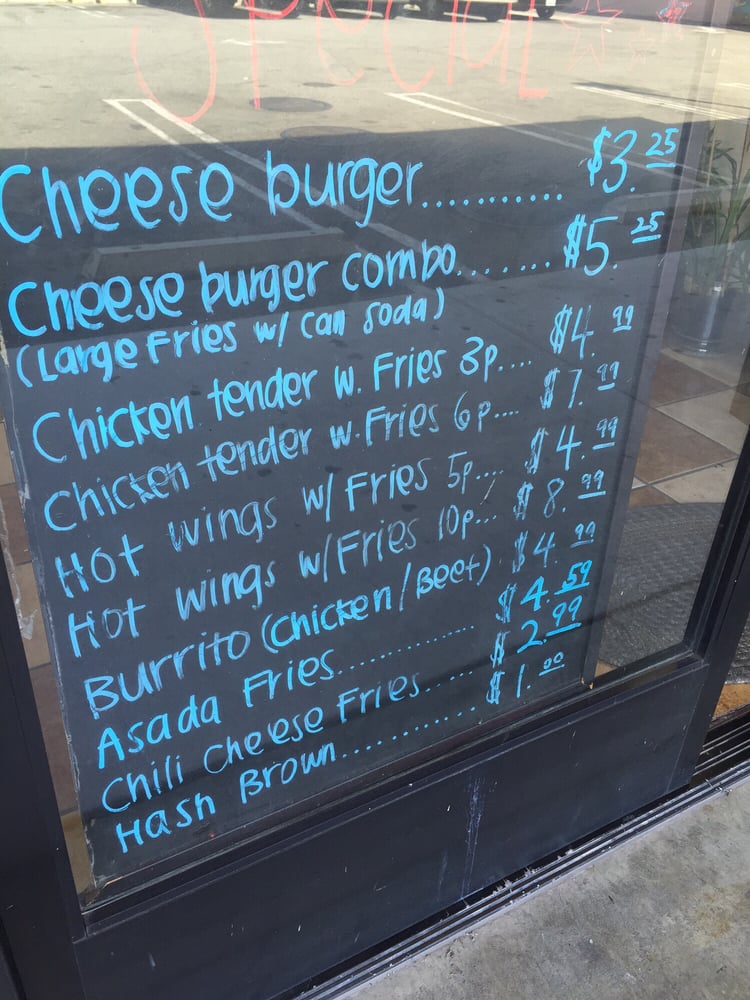 Special
Cheese burger........... $3.25
Cheese burger combo....... $5.25
(Large Fries w/ can soda)
Chicken tender w. Fries 3p.... $4.99
Chicken tender w. Fries 6p.... $7.99
Hot wings w/ Fries 5p.... $4.99
Hot wings w/ Fries 10p... $8.99
Burrito (Chicken/Beef) $4.99
Asada Fries.............. $4.59
Chili Cheese Fries...... $2.99
Hash Brown............. $1.00